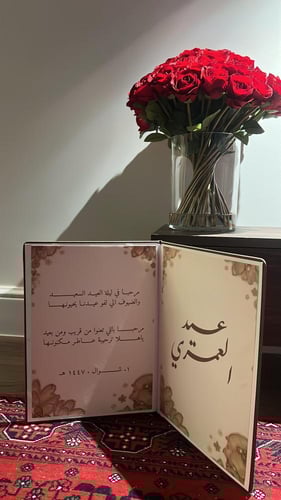 مرحبا في ليلة العيد السعيد
والضيوف الي لفو عيدنا يحيونها
مرحبا بالي تعنوا من قريب ومن بعيد
ياهلا ترحيبة خاطر مكنونها
٠١ شوال ١٤٤٧ هـ
عيد
العمري